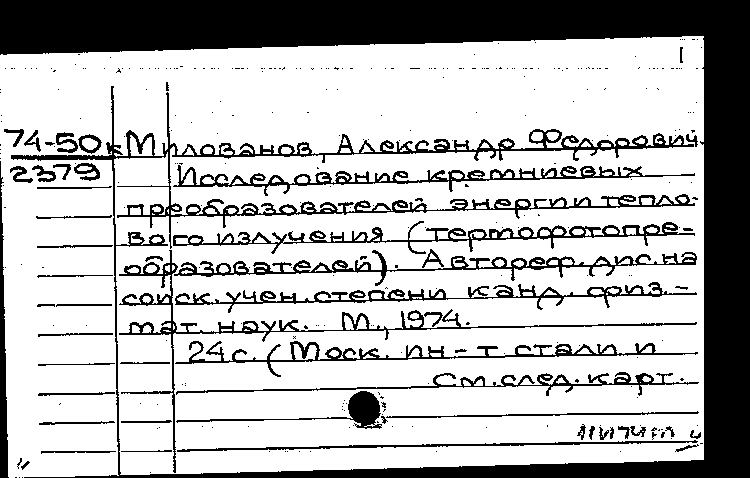 1
74-50к Милованов, Александр Федорович.
2379 Исследование кремниевых
преобразователей энергии тепло-
вого излучения (термофотопре=
образователей). Автореф. дис. на
соиск. учен. степени канд. физ.-
мат. наук. М., 1974.
24 с. (Моск. ин-т стали и
См. след. карт.